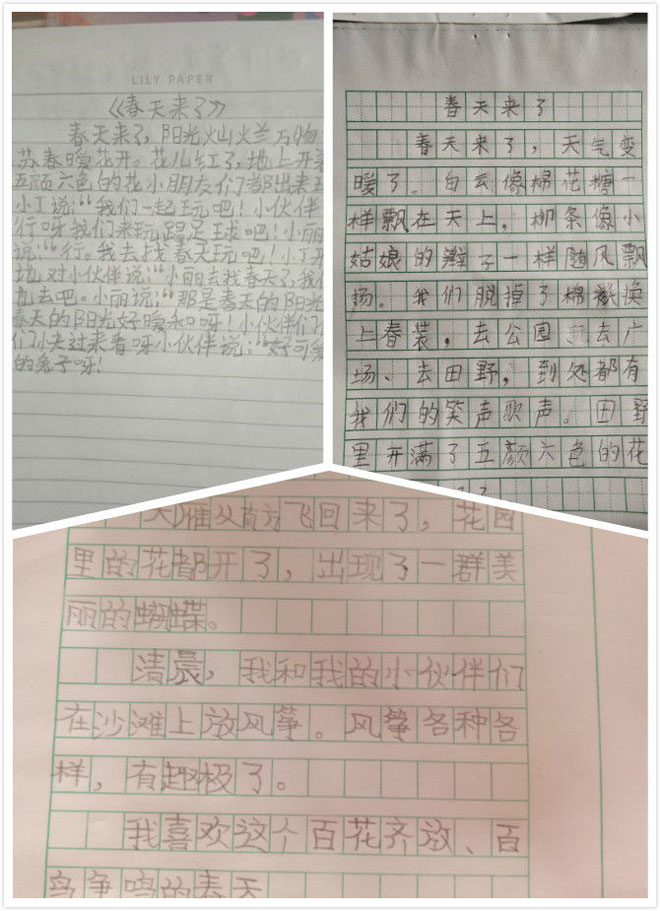 LILY PAPER
《春天来了》
春天来了,阳光灿烂万物
苏春暖花开。花儿红了,地上开
五颜六色的花小朋友们都出来
小丁说:“我们一起玩吧!小伙伴
行呀我们来玩踢足球吧!小丽
说:“行。我去找春天玩吧!小丁
地对小伙伴说:“小丽去找春天了,我们
去吧。小丽说:“那是春天的阳光
春天的阳光好暖和呀!小伙伴们
们小夫过来看呀小伙伴说:“好可
的兔子呀!
春天来了
春天来了,天气变
暖了。白云像棉花糖一
样飘在天上,柳条像小
姑娘的辫子一样随风飘
扬。我们脱掉了棉袄换
上春装,去公园 去广
场、去田野,到处都有
我们的笑声歌声。田野
里开满了五颜六色的花
从南方飞回来了,花园
里的花都开了,出现了一群美
丽的蝴蝶。
清晨,我和我的小伙伴们
在沙滩上放风筝。风筝各种各
样,有趣极了。
我喜欢这个百花齐放、百
鸟争鸣的春天